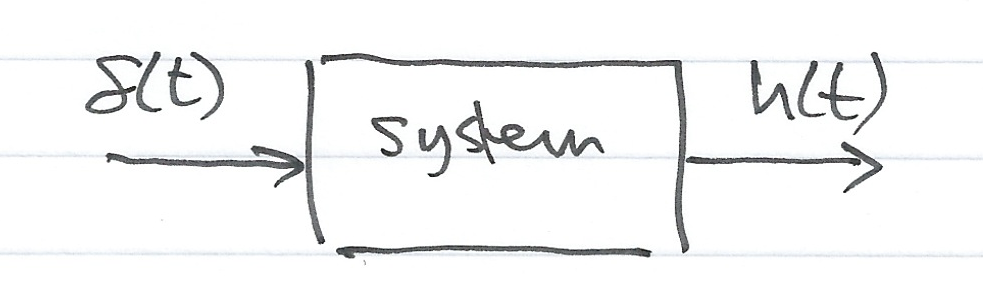 δ(t)
system
h(t)